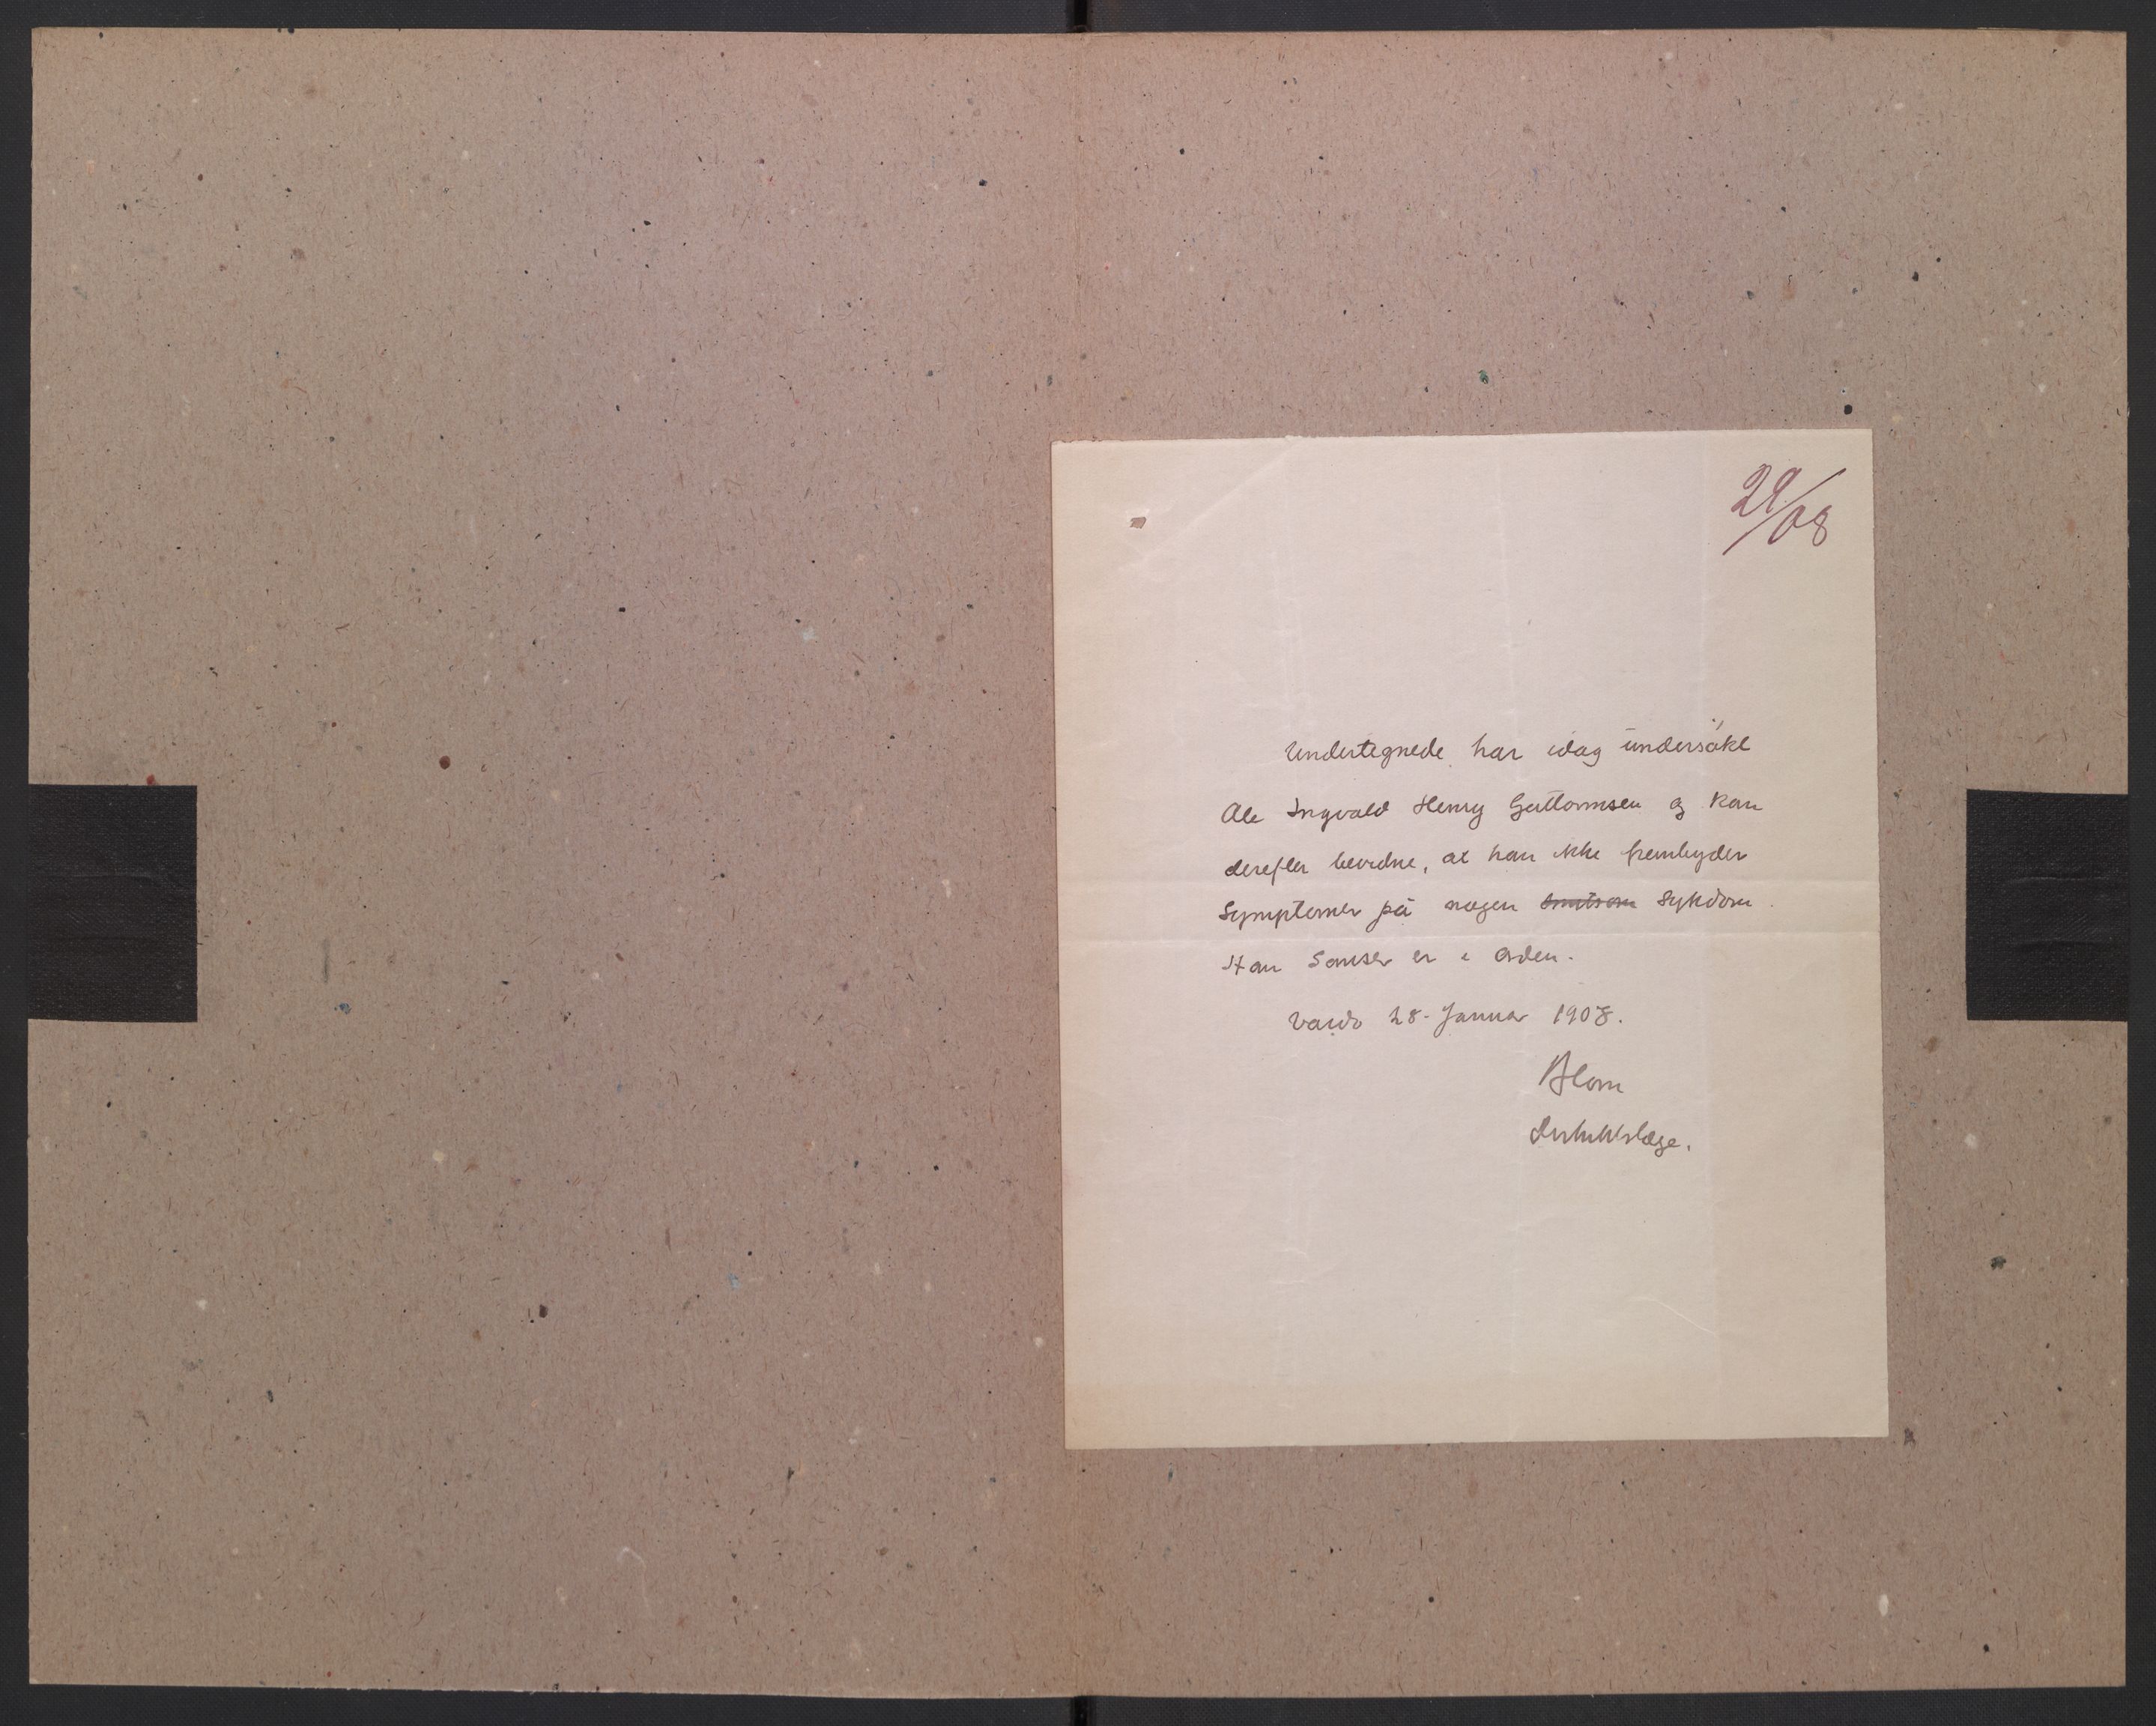 29/08
Undertegnede har idag undersøkt
Ole Ingvald Henry Guttormsen og kan
derefter bevidne, at han ikke frembyder
Symptomer på nogen smitsom Sykdom.
Han Sanser er i Orden.
Vardø 28. Januar 1908.
Blom
Distriktslæge.